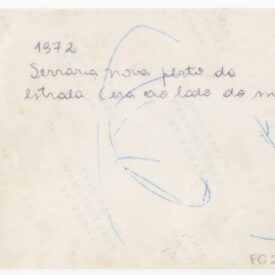 1972
Serraria nova perto da
estrada (era ao lado do m
FO 2